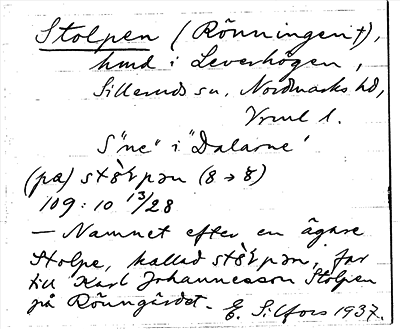 Stolpen (Rönningen †),
hmd i Leverhögen,
Silleruds sn, Nordmarks hd,
Vrml l.
S"ne" i "Dalarne"
(pa)
109:10 13/28
— Namnet efter en ägare
Stolpe, kallad, far
till Karl Johannesson Stolpen
på Rönngärdet.
E. Silfors 1937.